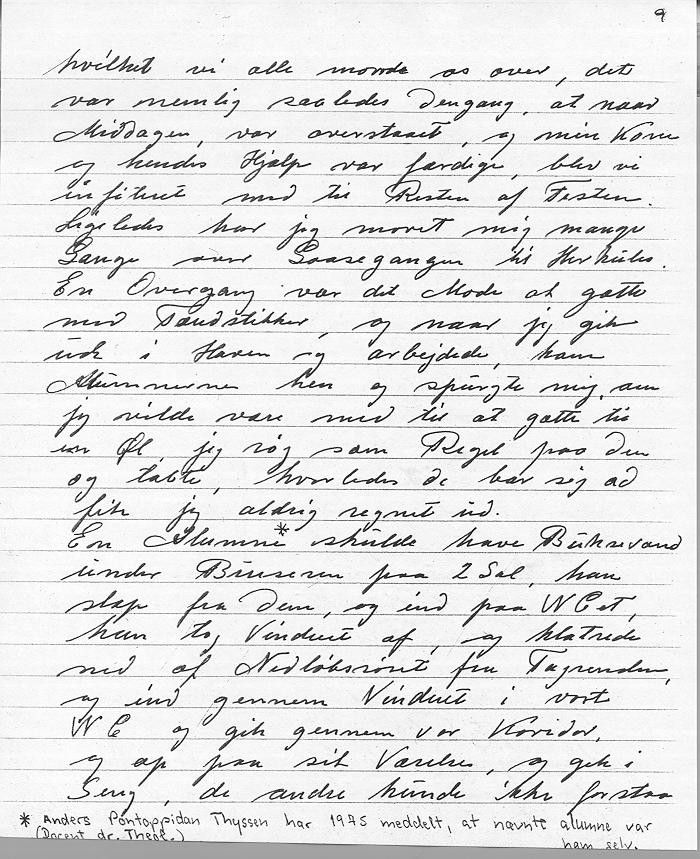 9
hvilket vi alle morede os over, det
var nemlig saaledes dengang, at naar
Middagen, var overstaaet, og min Kone
og hendes Hjælp var færdige, blev vi
inviteret med til Resten af Festen.
Ligeledes har jeg moret mig mange
Gange over Gaasegangen til Herkules.
En Overgang var det Mode at gætte
med Tændstikker, og naar jeg gik
ude i Haven og arbejdede, kom
Alumnerne hen og spurgte mig, om
jeg vilde være med til at gætte til
en Øl, jeg røg som Regel paa den
og tabte, hvorledes de bar sig ad
fik jeg aldrig regnet ud.
En Alumne* skulde have Buksevand
under Bruseren paa 2 Sal, han
slap fra dem, og ind paa WCet,
han tog Vinduet af, og klatrede
ned af Nedløbsrøret fra Tagrenden,
og ind gennem Vinduet i vort
WC og gik gennem vor Koridor,
og op paa sit Værelse, og gik i
Seng, de andre kunde ikke forstaa
* Anders Pontoppidan Thyssen har 1975 meddelt, at nævnte alumne var
(Docent dr. Theol.) ham selv.